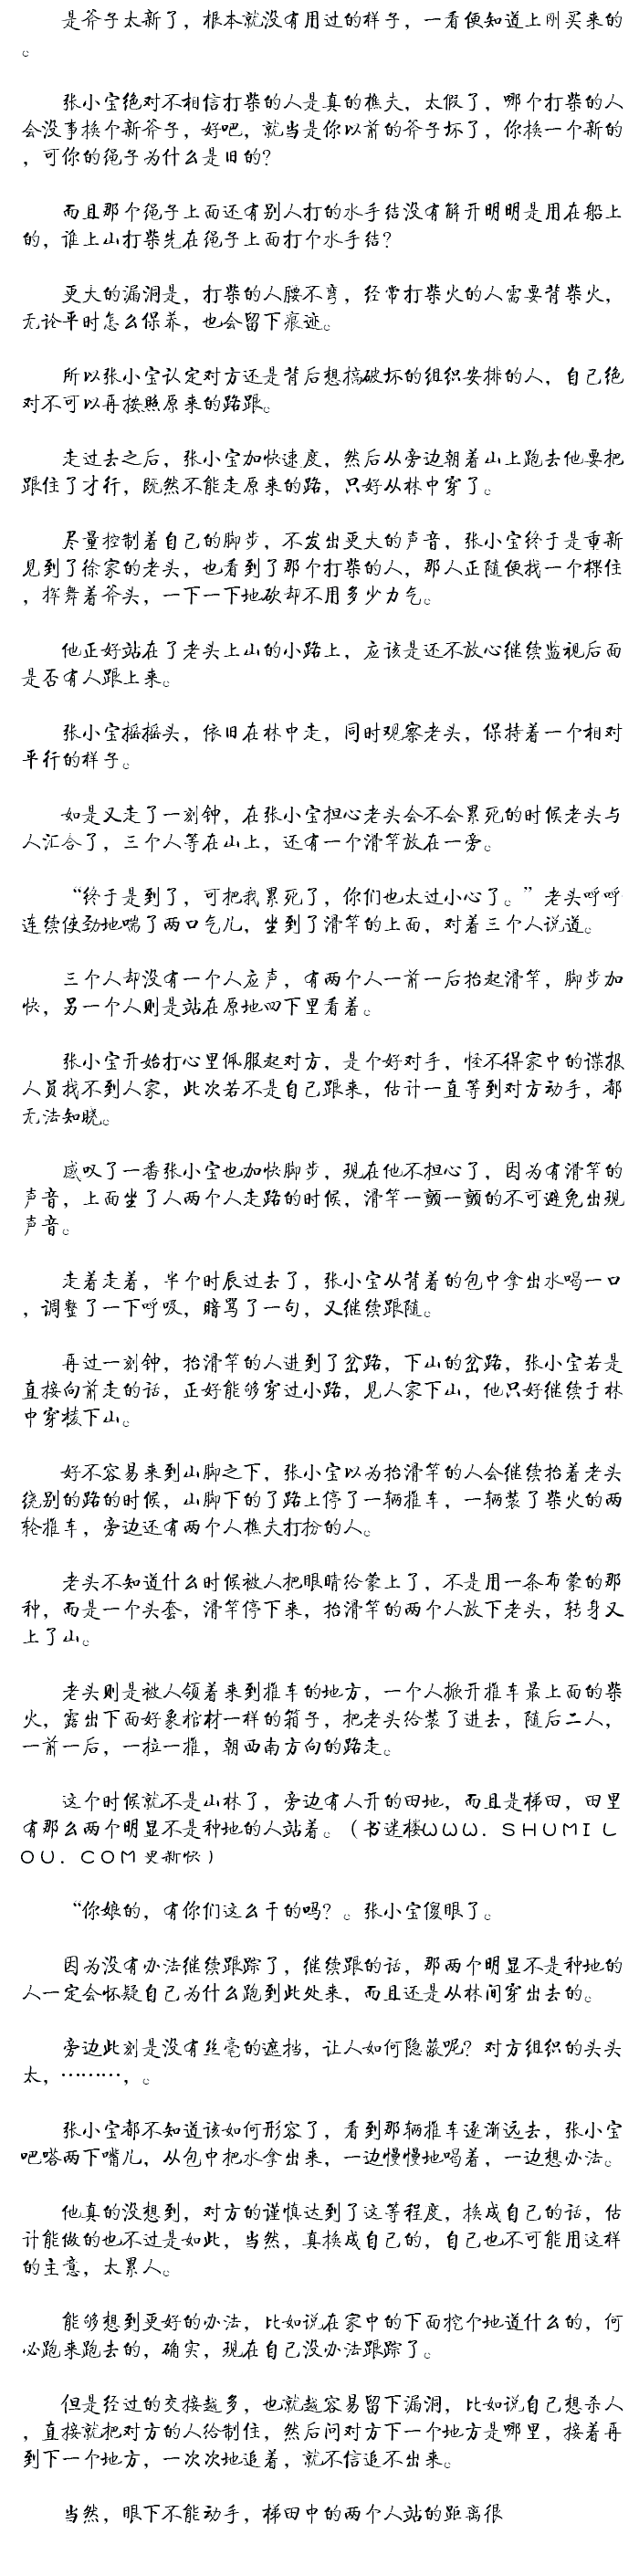 是斧子太新了，根本就没有用过的样子，一看便知道上刚买来的
。
张小宝绝对不相信打柴的人是真的樵夫，太假了，哪个打柴的人
会没事换个新斧子，好吧，就当是你以前的斧子坏了，你换一个新的
，可你的绳子为什么是旧的？
而且那个绳子上面还有别人打的水手结没有解开明明是用在船上
的，谁上山打柴先在绳子上面打个水手结？
更大的漏洞是，打柴的人腰不弯，经常打柴火的人需要背柴火，
无论平时怎么保养，也会留下痕迹。
所以张小宝认定对方还是背后想搞破坏的组织安排的人，自己绝
对不可以再按照原来的路跟。
走过去之后，张小宝加快速度，然后从旁边朝着山上跑去他要把
跟住了才行，既然不能走原来的路，只好从林中穿了。
尽量控制着自己的脚步，不发出更大的声音，张小宝终于是重新
见到了徐家的老头，也看到了那个打柴的人，那人正随便找一个棵住
，挥舞着斧头，一下一下地砍却不用多少力气。
他正好站在了老头上山的小路上，应该是还不放心继续监视后面
是否有人跟上来。
张小宝摇摇头，依旧在林中走，同时观察老头，保持着一个相对
平行的样子。
如是又走了一刻钟，在张小宝担心老头会不会累死的时候老头与
人汇合了，三个人等在山上，还有一个滑竿放在一旁。
“终于是到了，可把我累死了，你们也太过小心了。”老头呼呼
连续使劲地喘了两口气儿，坐到了滑竿的上面，对着三个人说道。
三个人却没有一个人应声，有两个人一前一后抬起滑竿，脚步加
快，另一个人则是站在原地四下里看着。
张小宝开始打心里佩服起对方，是个好对手，怪不得家中的谍报
人员找不到人家，此次若不是自己跟来，估计一直等到对方动手，都
无法知晓。
感叹了一番张小宝也加快脚步，现在他不担心了，因为有滑竿的
声音，上面坐了人两个人走路的时候，滑竿一颤一颤的不可避免出现
声音。
走着走着，半个时辰过去了，张小宝从背着的包中拿出水喝一口
，调整了一下呼吸，暗骂了一句，又继续跟随。
再过一刻钟，抬滑竿的人进到了岔路，下山的岔路，张小宝若是
直接向前走的话，正好能够穿过小路，见人家下山，他只好继续于林
中穿梭下山。
好不容易来到山脚之下，张小宝以为抬滑竿的人会继续抬着老头
绕别的路的时候，山脚下的了路上停了一辆推车，一辆装了柴火的两
轮推车，旁边还有两个人樵夫打扮的人。
老头不知道什么时候被人把眼睛给蒙上了，不是用一条布蒙的那
种，而是一个头套，滑竿停下来，抬滑竿的两个人放下老头，转身又
上了山。
老头则是被人领着来到推车的地方，一个人掀开推车最上面的柴
火，露出下面好象棺材一样的箱子，把老头给装了进去，随后二人，
一前一后，一拉一推，朝西南方向的路走。
这个时候就不是山林了，旁边有人开的田地，而且是梯田，田里
有那么两个明显不是种地的人站着。（书迷楼ＷＷＷ．ＳＨＵＭＩＬ
ＯＵ．ＣＯＭ更新快）
“你娘的，有你们这么干的吗？。张小宝傻眼了。
因为没有办法继续跟踪了，继续跟的话，那两个明显不是种地的
人一定会怀疑自己为什么跑到此处来，而且还是从林间穿出去的。
旁边此刻是没有丝毫的遮挡，让人如何隐蔽呢？对方组织的头头
太，………，。
张小宝都不知道该如何形容了，看到那辆推车逐渐远去，张小宝
吧嗒两下嘴儿，从包中把水拿出来，一边慢慢地喝着，一边想办法。
他真的没想到，对方的谨慎达到了这等程度，换成自己的话，估
计能做的也不过是如此，当然，真换成自己的，自己也不可能用这样
的主意，太累人。
能够想到更好的办法，比如说在家中的下面挖个地道什么的，何
必跑来跑去的，确实，现在自己没办法跟踪了。
但是经过的交接越多，也就越容易留下漏洞，比如说自己想杀人
，直接就把对方的人给制住，然后问对方下一个地方是哪里，接着再
到下一个地方，一次次地追着，就不信追不出来。
当然，眼下不能动手，梯田中的两个人站的距离很